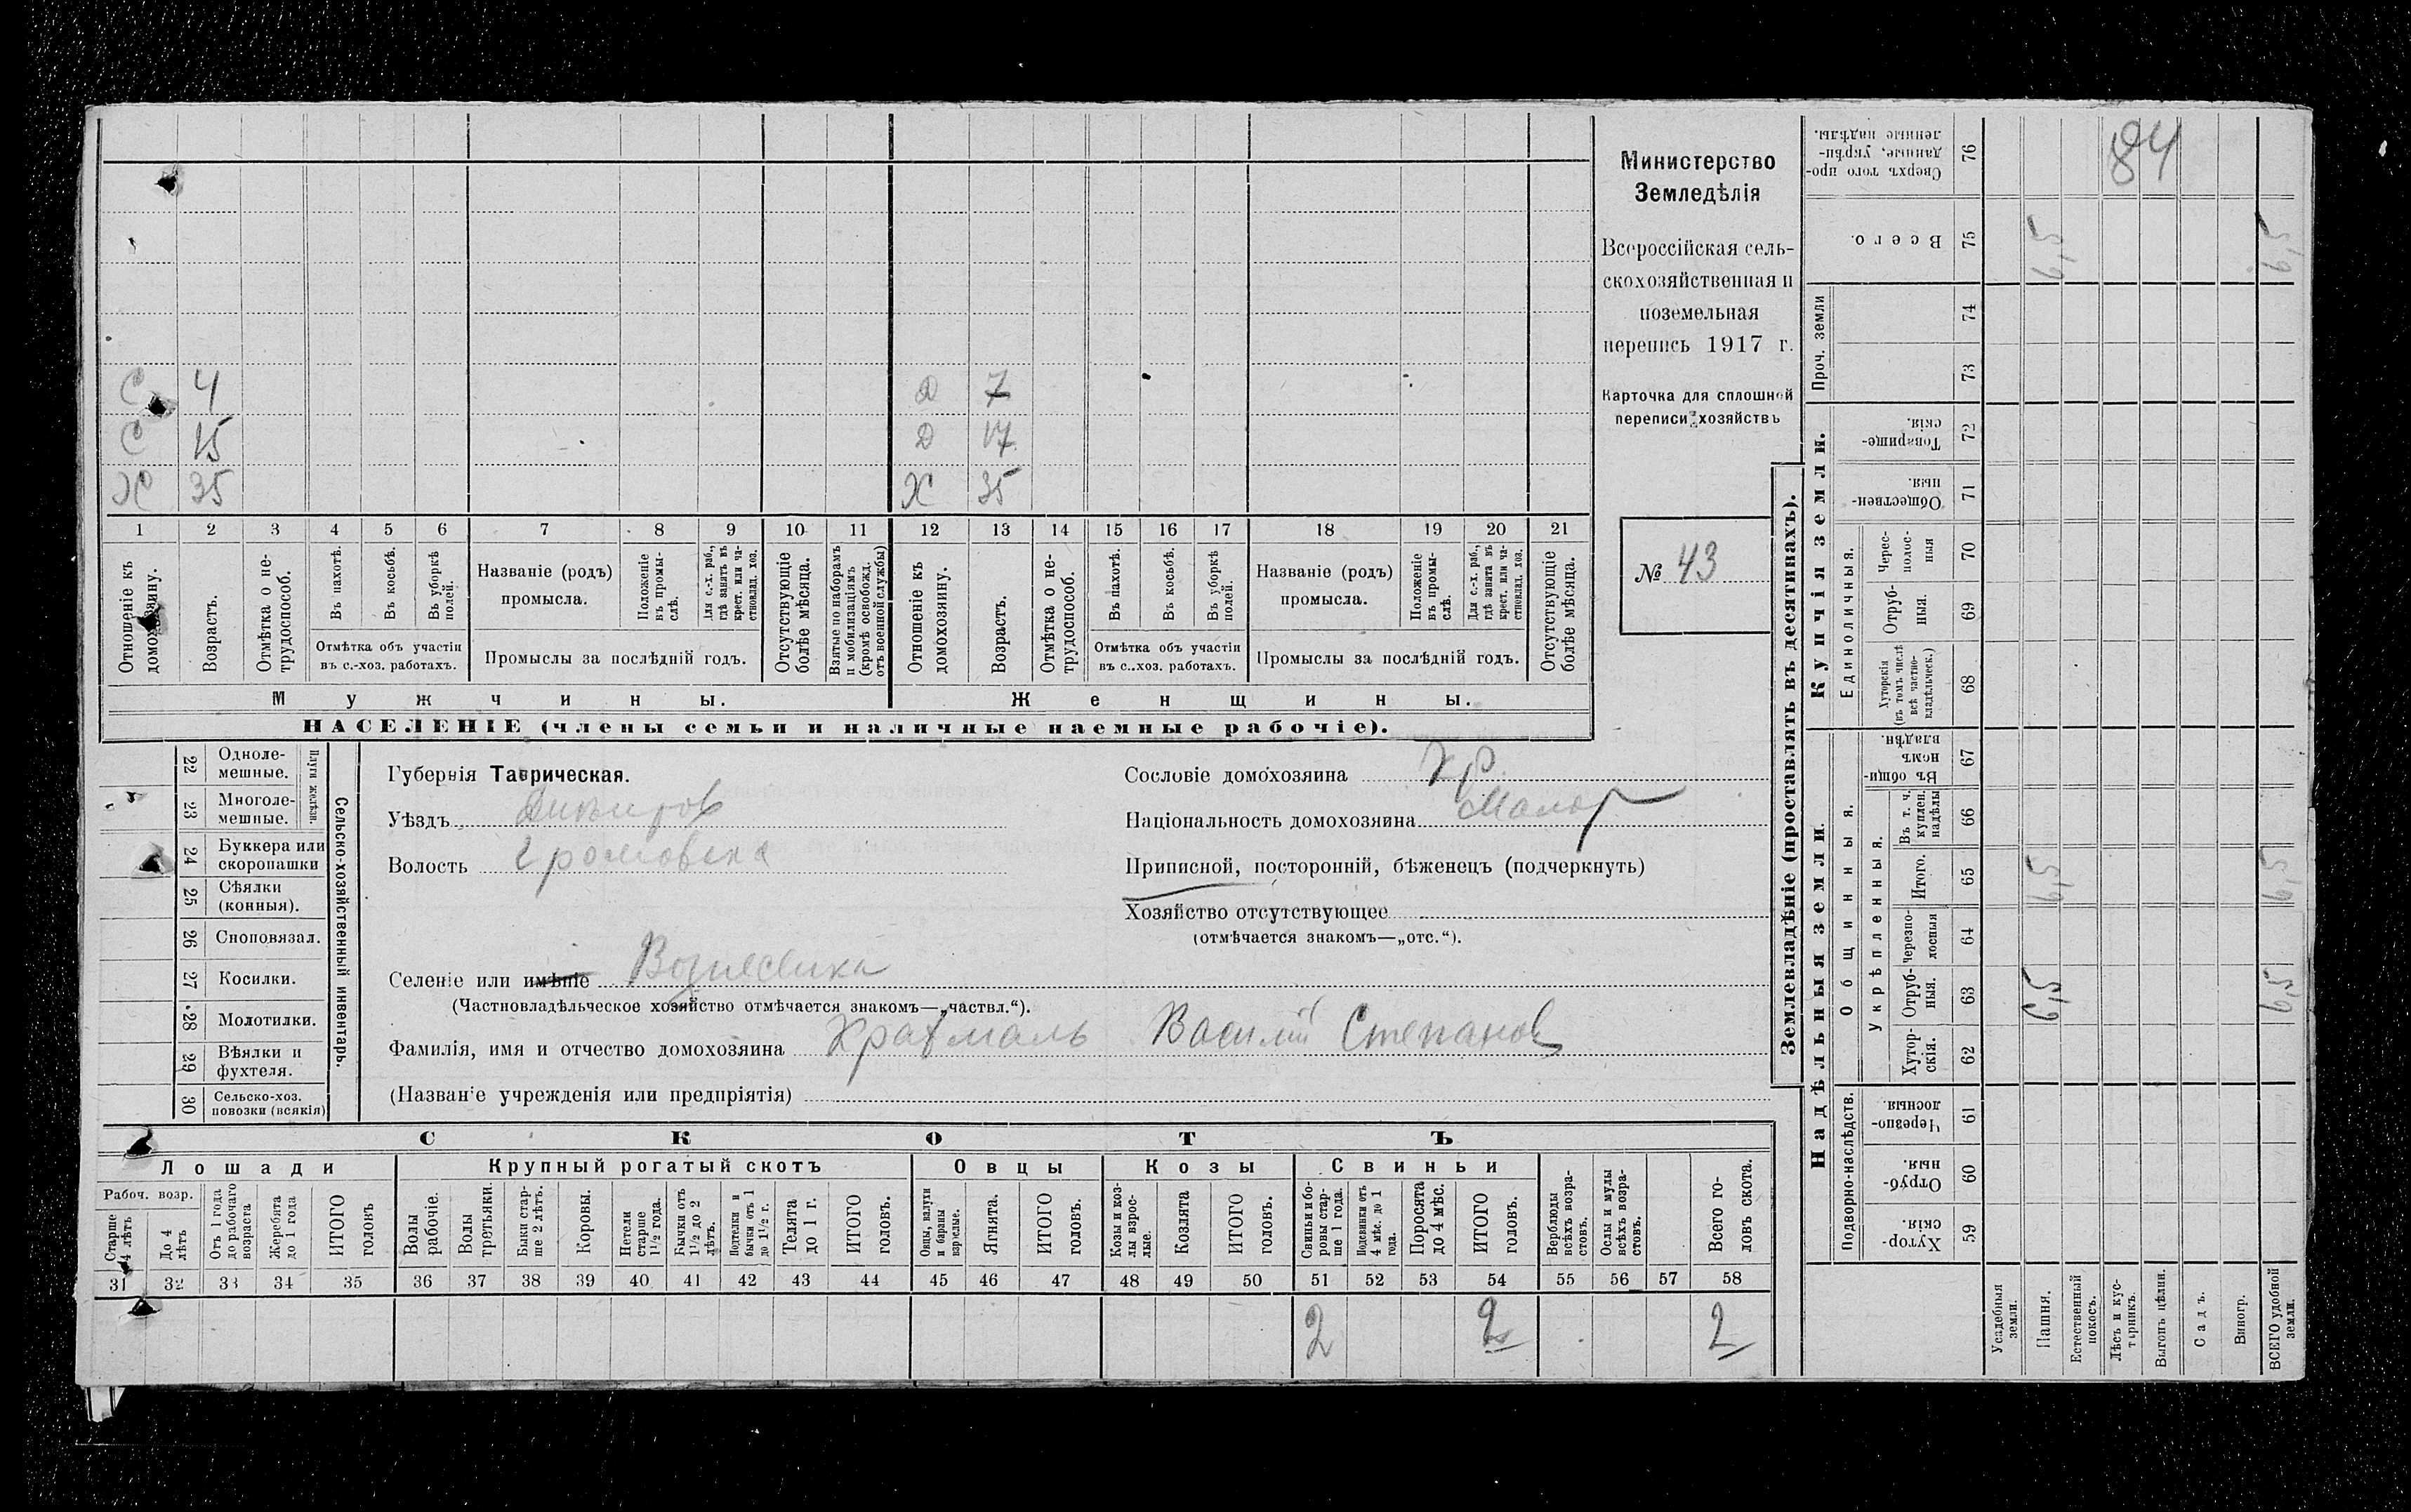 Министерство
Земледѣлія
Всероссійская сель-
скохозяйственная и
поземельная
перепись 1917 г.
Карточка для сплошной
переписи хозяйствъ
№ 43
84
С 4 Д 7
С 15 Д 17
Х 35 Х 35
1 2 3 4 5 6 7 8 9 10 11 12 13 14 15 16 17 18 19 20 21
Отношеніе къ домохозяину.
Возрастъ.
Отмѣтка о не-
трудоспособ.
Въ пахотѣ.
Въ косьбѣ.
Въ уборкѣ
полей.
Отмѣтка объ участіи
въ с.-хоз. работахъ.
Названіе (родъ)
промысла.
Положеніе
въ промы-
слѣ.
Для с.-х. раб.,
гдѣ занятъ въ
крест. или ча-
стновлад. хоз.
Промыслы за послѣдній годъ.
Отсутствующіе
болѣе мѣсяца.
Взятые по наборамъ
и мобилизаціямъ
(кромѣ освобожд.
отъ военной службы)
Отношеніе къ
домохозяину.
Возрастъ.
Отмѣтка о не-
трудоспособ.
Въ пахотѣ.
Въ косьбѣ.
Въ уборкѣ
полей.
Отмѣтка объ участіи
въ с..хоз. работахъ.
Названіе (родъ)
промысла.
Положеніе
въ промы-
слѣ.
Для с.-х. раб.,
гдѣ занята въ
крест. или ча-
стновлад. хоз.
Промыслы за послѣдній годъ.
Отсутствующіе
болѣе мѣсяца.
Мужчины. Женщины.
НАСЕЛЕНІЕ (члены семьи и наличные наемные рабочіе).
Сельско-хозяйственный инвентарь.
Плуги желѣзн.
22 Одноле-
мешные.
23 Многоле-
мешные.
24 Буккера или
скоропашки
25 Сѣялки
(конныя).
26 Сноповязал.
27 Косилки.
28 Молотилки.
29 Вѣялки и
фухтеля.
30 Сельско-хоз.
повозки (всякія)
Губернія Таврическая.
Уѣздъ Днѣпров
Волость Громовска
Селеніе или имѣніе Вознесенка
(Частновладѣльческое хозяйство отмѣчается знакомъ—„частвл.“).
Фамилія, имя и отчество домохозяина Крахмаль Василій Степанов
(Названіе учрежденія или предпріятія)
Сословіе домохозяина Кр.
Національность домохозяина Малор
Приписной, посторонній, бѣженецъ (подчеркнуть)
Хозяйство отсутствующее
(отмѣчается знакомъ—„отс.“).
СКОТЪ
Лошади Крупный рогатый скотъ Овцы Козы Свиньи
Рабоч. возр.
Старше
4 лѣтъ
До 4
лѣтъ
Отъ 1 года
до рабочаго
возраста
Жеребята
до 1 года
ИТОГО
головъ
Волы
рабочіе.
Волы
третьяки.
Быки стар-
ше 2 лѣтъ.
Коровы.
Нетели
старше
1½ года.
Бычки отъ
1½ до 2
лѣтъ.
Подтелки и
бычки отъ 1
до 1½ г.
Телята
до 1 г.
ИТОГО
головъ.
Овцы, валухи
и бараны
взрослые.
Ягнята.
ИТОГО
головъ.
Козы и коз-
лы взрос-
лые.
Козлята
ИТОГО
головъ.
Свиньи и бо-
ровы стар-
ше 1 года.
Подсвинки отъ
4 мѣс. до 1
года.
Поросята
до 4 мѣс.
ИТОГО
головъ.
Верблюды
всѣхъ возра-
стовъ.
Ослы и мулы
всѣхъ возра-
стовъ.
Всего го-
ловъ скота.
31 32 33 34 35 36 37 38 39 40 41 42 43 44 45 46 47 48 49 50 51 52 53 54 55 56 57 58
2 2 2
Землевладѣніе (проставлять въ десятинахъ).
Купчія земли.
Надѣльныя земли.
Сверхъ того про-
данные, укрѣп-
ленные надѣлы. 76
Всего. 75 6,5 6,5
Проч. земли
74
73
Товарище-
скія. 72
Обществен-
ныя. 71
Единоличныя.
Черес-
полос-
ныя 70
Отруб-
ныя. 69
Хуторскія
(въ томъ числѣ
всѣ частно-
владѣльческ.) 68
Общинныя.
Въ общи-
номъ
владѣн. 67
Укрѣпленныя.
Въ т. ч.
куплен.
надѣлы 66
Итого. 65 6,5 6,5
Черезпо-
лосныя 64
Отруб-
ныя. 63 6,5 6,5
Хутор-
скія. 62
Подворно-наслѣдств.
Черезпо-
лосныя. 61
Отруб-
ныя. 60
Хутор-
скія. 59
Усадебныя
земли.
Пашня.
Естественный
покосъ.
Лѣсъ и кус-
тарникъ.
Выгонъ цѣлин.
Садъ.
Виногр.
ВСЕГО удобной
земли.